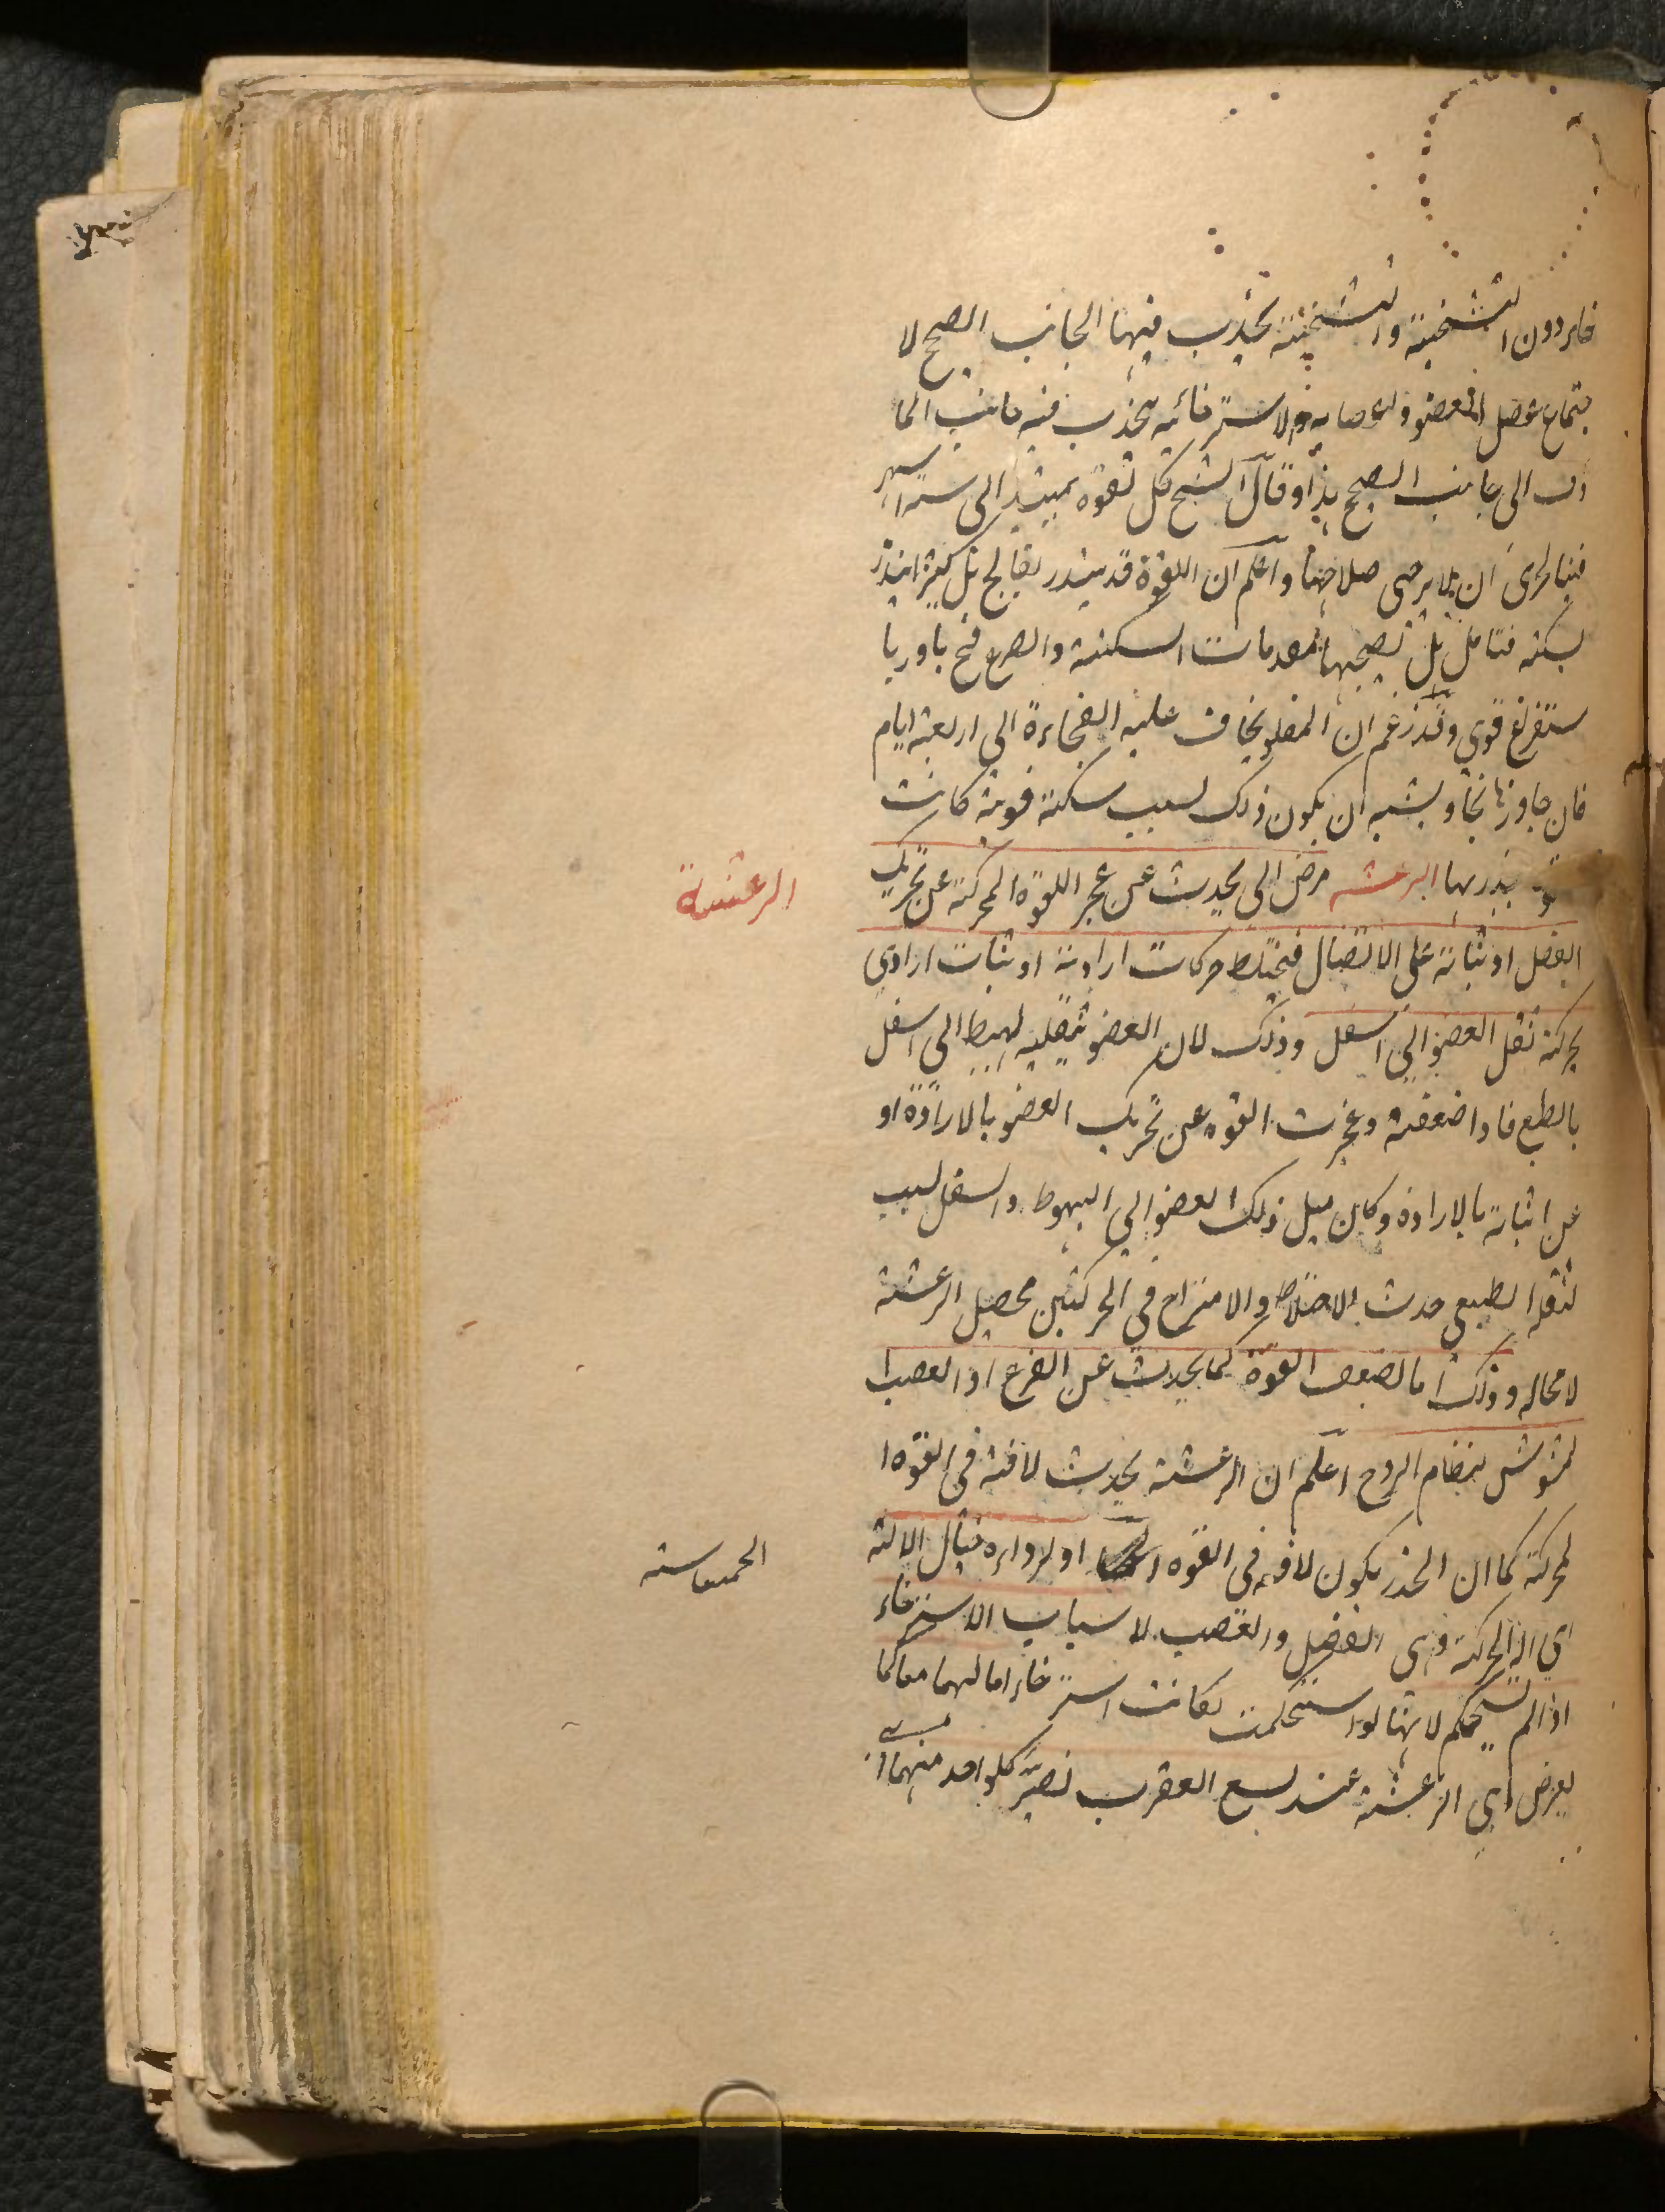 خاء دون التشنجية والتشنجية يجذب فيها الجانب الصحيح لا
جتماع عضل العضو واعصابه والاسترخائية يجذب فيه جانب الما
وف الى جانب الصحيح هذا وقال الشيخ كل لقوة يمتد الى ستة اشهر
فبالحرى ان لا يرجى صلاحها واعلم ان اللقوة قد ينذر بفالج بل كثيرا ينذر
بسكتة فتامل هل تصحبها مقدمات السكتة والصرع فح بادر با
ستفراغ قوي وقد زعم ان الملقو يخاف عليه الفجاءة الى اربعة ايام
فان جاوزها نجا ويشبه ان يكون ذلك لسبب سكتة قوية كانت
ينذر بها الرعشه مرض الى يحدث عن عجز القوة المحركة عن تحريك
العضل او ثباته على الاتصال فيختلط حركات ارادية او ثبات ارادي
بحركة ثقل العضو الى اسفل وذلك لان العضو بثقليه يهبط الى اسفل
بالطبع فاذا ضعفت وعجزت القوة عن تحريك العضو بالارادة او
عن اثباته بالارادة وكان ميل ذلك العضو الى الهبوط والسفل لسبب
ثقله الطبعي حدث الاختلاط والامتزاج في الحركتين محصيل الرعشة
لا محاله وذلك اما لضعف القوة كما يحدث عن الفزع او الغضب ا
لمشوشش لنظام الروح اعلم ان الرعشة يحدث لافة في القوة ا
لمحركة كما ان الخدر يكون لافة في القوة او لرداءه حال الالة
اي الة الحركة وهي العضل والعصب لاسباب الاسترخاء
اذا لم تستحكم لانها لو استحكمت لكانت استرخاء اما لهما معا كما
يعرض اي الرعشة عند لسع العقرب لضرر كلواحد منهما
الرعشة
الحساسة